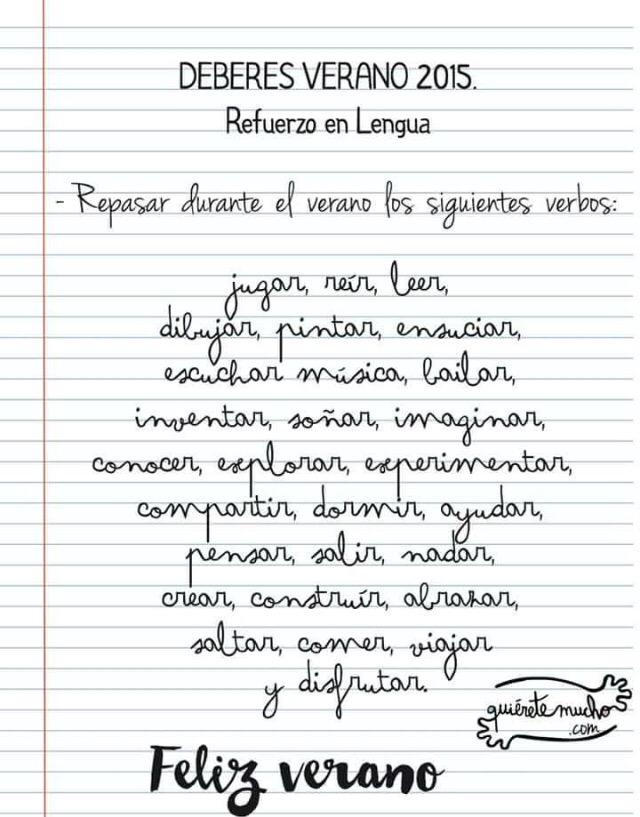 DEBERES VERANO 2015.
Refuerzo en Lengua
- Repasar durante el verano los siguientes verbos:
jugar, reír, leer,
dibujar, pintar, ensuciar,
escuchar música, bailar,
inventar, soñar, imaginar,
conocer, explorar, experimentar,
compartir, dormir, ayudar,
pensar, salir, nadar,
crear, construír, abrazar,
saltar, comer, viajar
y disfrutar.
quiéretemucho
.com
Feliz verano